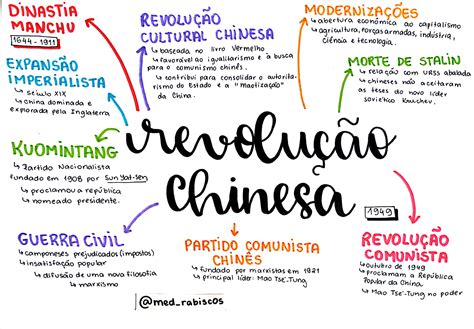 DINASTIA
MANCHU
1644-1911
EXPANSÃO
IMPERIALISTA
século XIX
china dominada e
explorada pela Inglaterra
KUOMINTANG
Partido Nacionalista
fundado em 1908 por Sun Yat-sen
proclamou a república
nomeado presidente.
GUERRA CIVIL
camponeses prejudicados (impostos)
insatisfação popular
difusão de uma nova filosofia
marxismo
REVOLUÇÃO
CULTURAL CHINESA
baseada no livro Vermelho
favorável ao igualitarismo e à busca
para o comunismo chinês.
contribui para consolidar o autorita-
rismo do Estado e a "Maotização"
da China.
revolução
chinesa
PARTIDO COMUNISTA
CHINÊS
fundado por marxistas em 1921
principal líder: Mao Tsé-Tung
@med_rabiscos
MODERNIZAÇÕES
abertura econômica ao capitalismo
agricultura, forças armadas, indústria,
ciência e tecnologia.
MORTE DE STALIN
relação com URSS abalada
chineses não aceitaram
as teses do novo líder
soviético
1949
REVOLUÇÃO
COMUNISTA
outubro de 1949
proclamam a República
Popular da China
Mao Tsé-Tung no poder